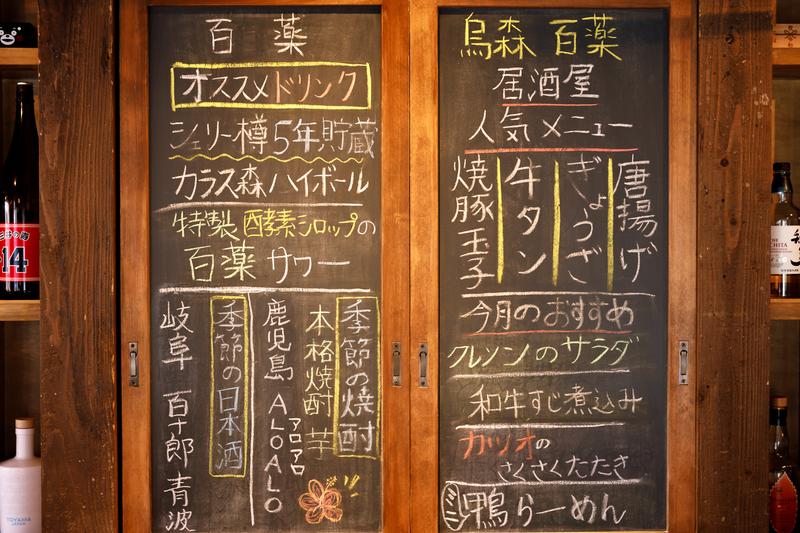 百薬
オススメドリンク
シェリー樽5年貯蔵
カラス森ハイボール
特製酵素シロップの
百薬サワー
季節の焼酎
本格焼酎 芋
鹿児島 ALOALO
アロアロ
季節の日本酒
岐阜 百十郎 青波
烏森 百薬
居酒屋
人気メニュー
唐揚げ
ぎょうざ
牛タン
焼豚玉子
今月のおすすめ
クレソンのサラダ
和牛すじ煮込み
カツオの
さくさくたたき
鴨らーめん
14
TOYAMA
JAPAN